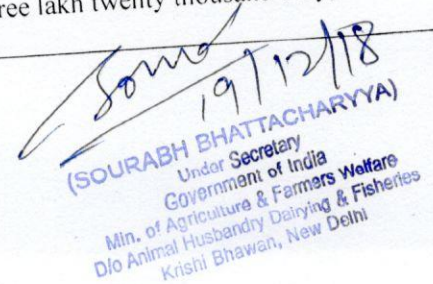 ree lakh twenty thousand
19/12/18
(SOURABH BHATTACHARYYA)
Under Secretary
Government of India
Min. of Agriculture & Farmers Welfare
D/o Animal Husbandry Dairying & Fisheries
Krishi Bhawan, New Delhi